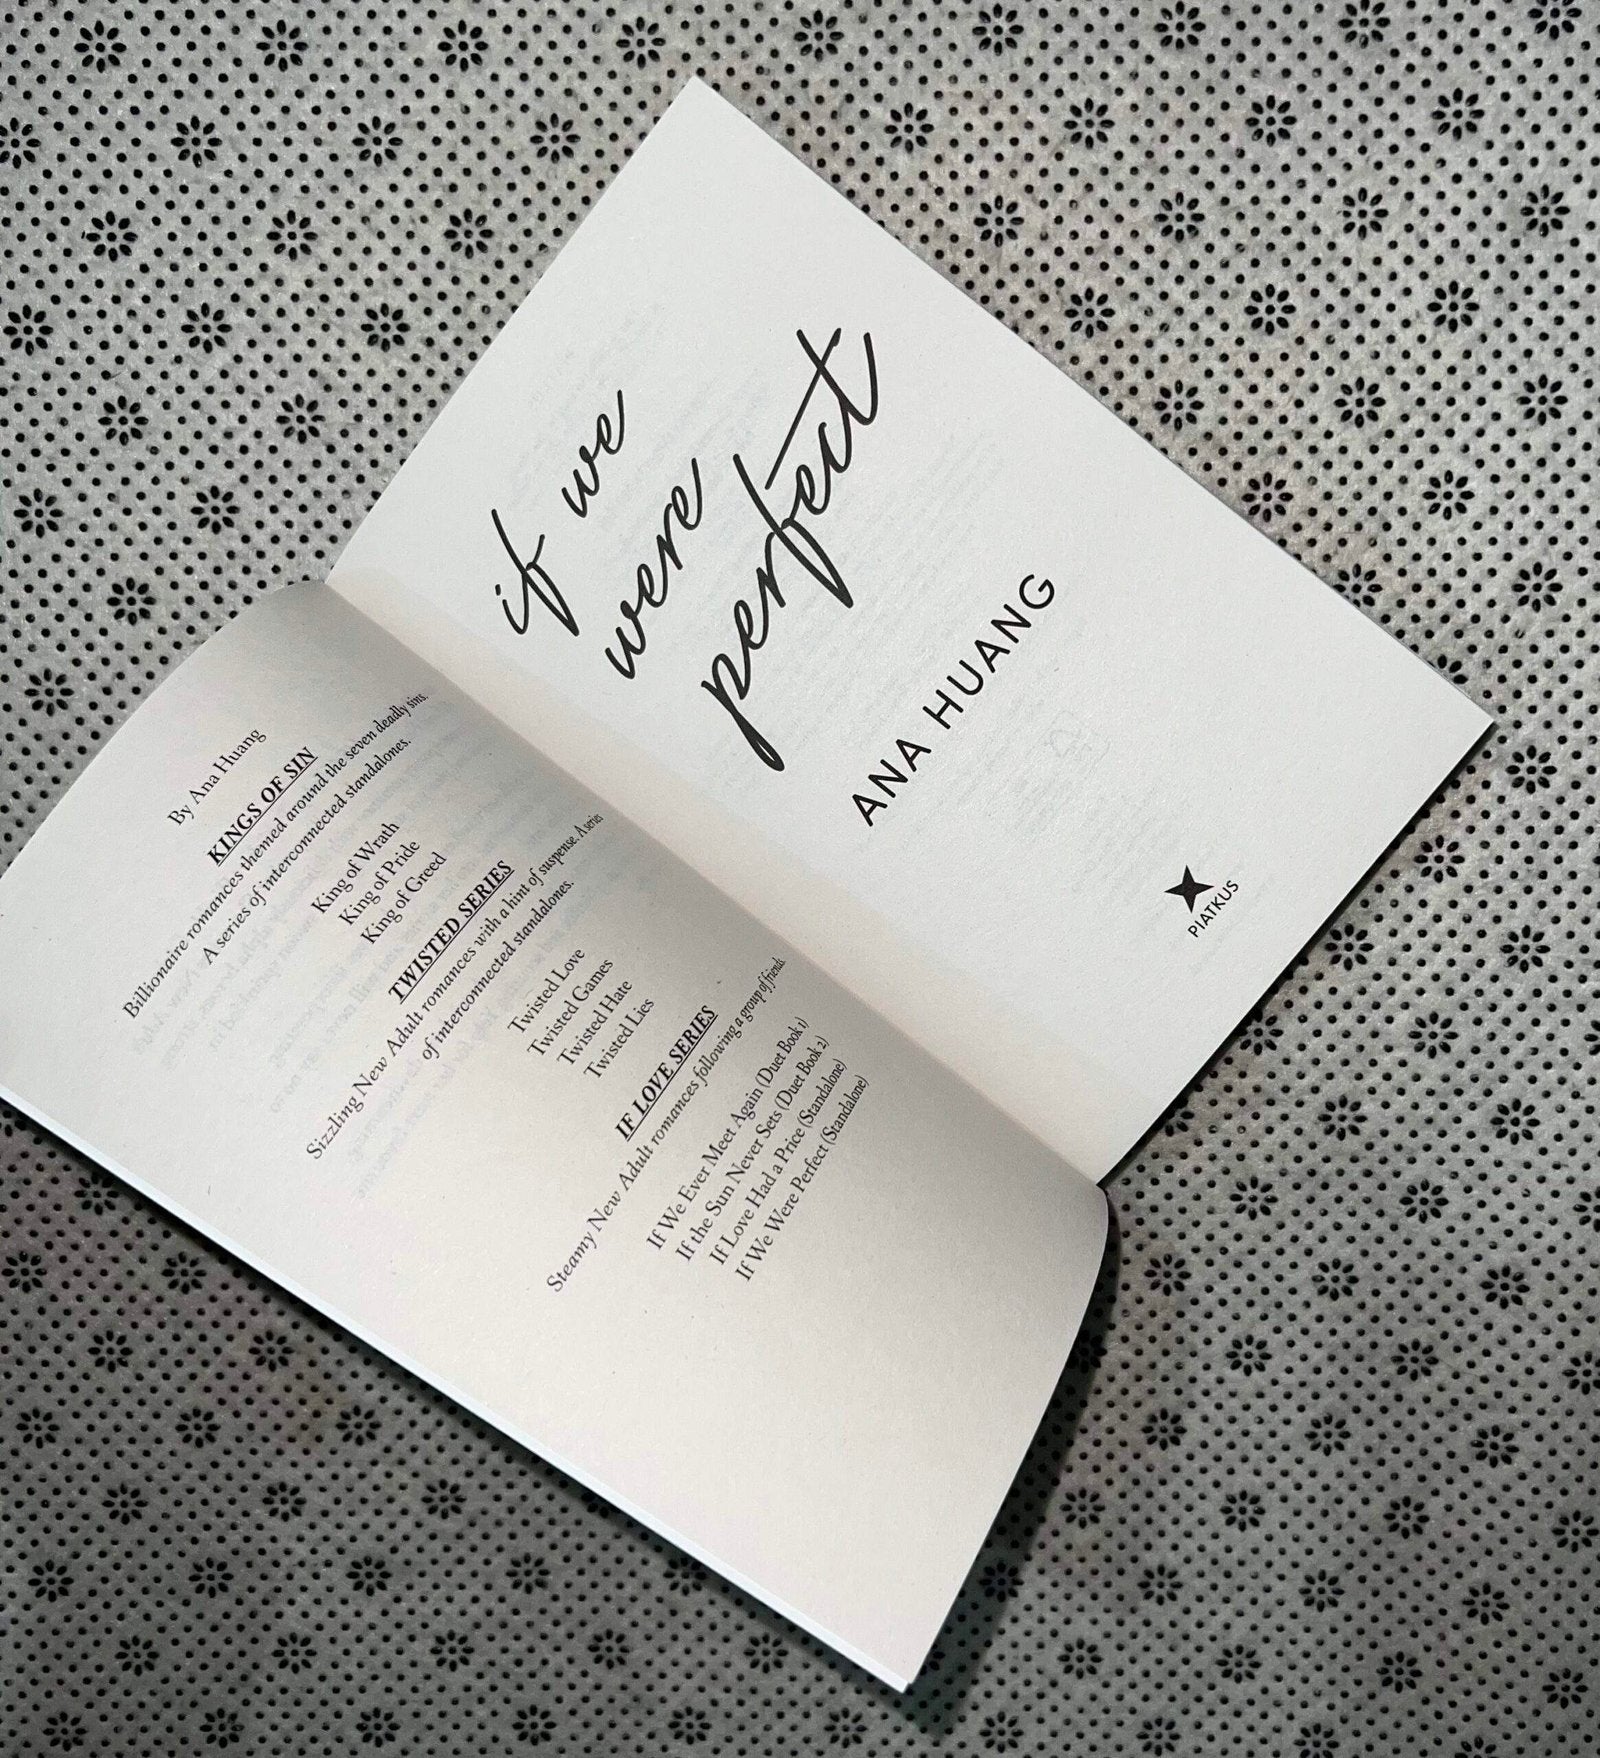 By Ana Huang
KINGS OF SIN
Billionaire romances themed around the seven deadly sins.
A series of interconnected standalones.
King of Wrath
King of Pride
King of Greed
TWISTED SERIES
Sizzling New Adult romances with a hint of suspense. A series
of interconnected standalones.
Twisted Love
Twisted Games
Twisted Hate
Twisted Lies
IF LOVE SERIES
Steamy New Adult romances following a group of friends.
If We Ever Meet Again (Duet Book 1)
If the Sun Never Sets (Duet Book 2)
If Love Had a Price (Standalone)
If We Were Perfect (Standalone)
if we
were
perfect
ANA HUANG
PIATKUS